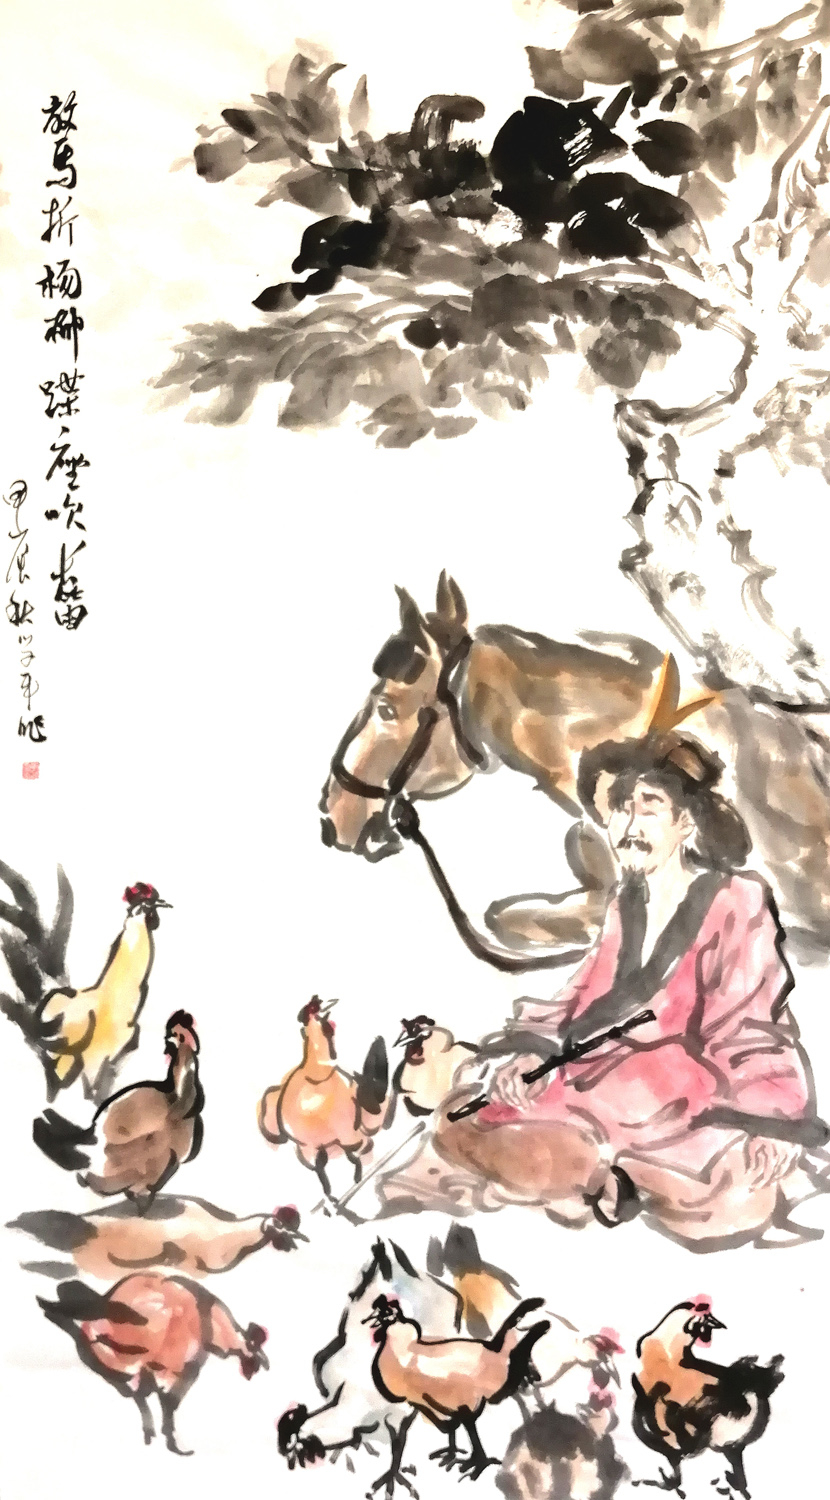 放马折杨柳蹀座吹长笛
甲辰秋学平作